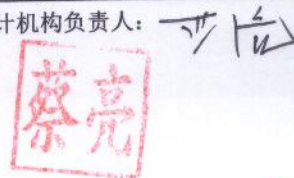 计机构负责人：
蔡亮